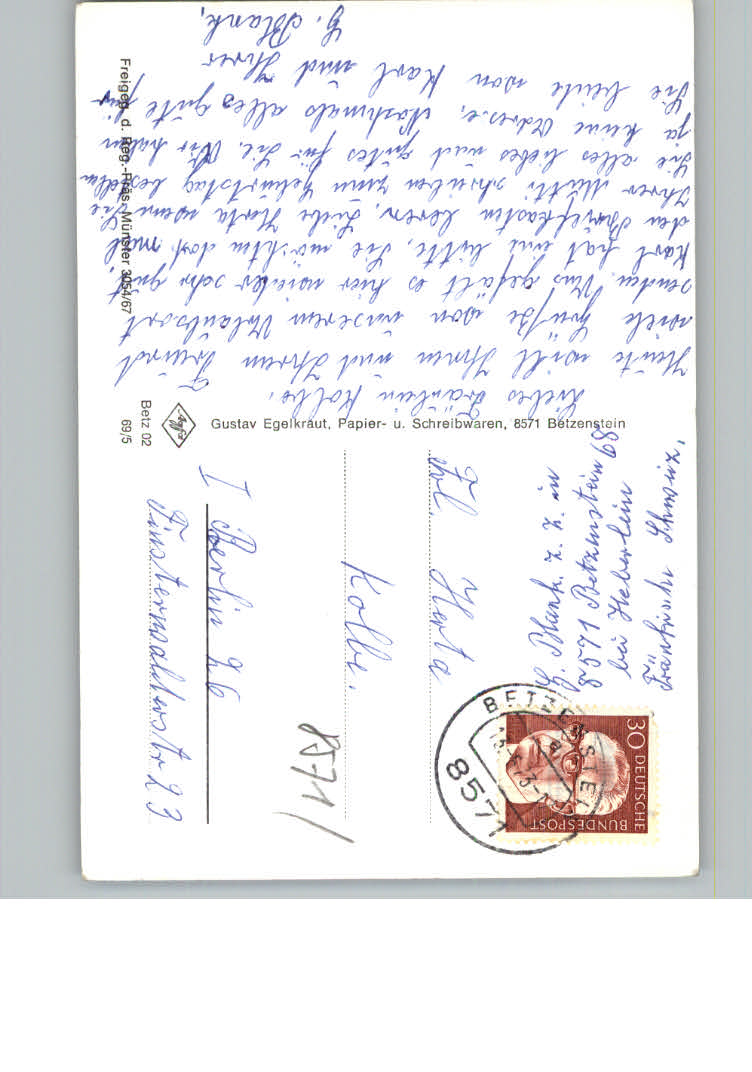 Liebes Fräulein Kolbe,
Heute will Ihnen und Ihrem Freund
viele Grüße von unserem Urlaubsort
senden. Uns gefält es hier wieder sehr gut,
Karl hat eine bitte, Sie möchten doch mal
den Briefkasten leeren, Liebe Herta wenn Sie
Ihrer Mutti schreiben zum Geburtstag bestellen
Sie alles liebes und gutes für Sie. Wir haben
ja keine Adresse, Nochmals alles gute für
Sie beide von Karl und Ihrer
G. Blank,
Freigeg. d. Reg.-Präs. Münster 3054/67
Gustav Egelkraut, Papier- u. Schreibwaren, 8571 Betzenstein
Agfa
Betz 02
69/5
G. Blank. z. Z. in
8571 Betzenstein 89
bei Heberlein
Fränkische Schweiz.
30 DEUTSCHE
BUNDESPOST
BETZENSTEIN
8571
Frl. Herta
Kolbe.
8571/
I Berlin 26
Finsterwalderstr 23